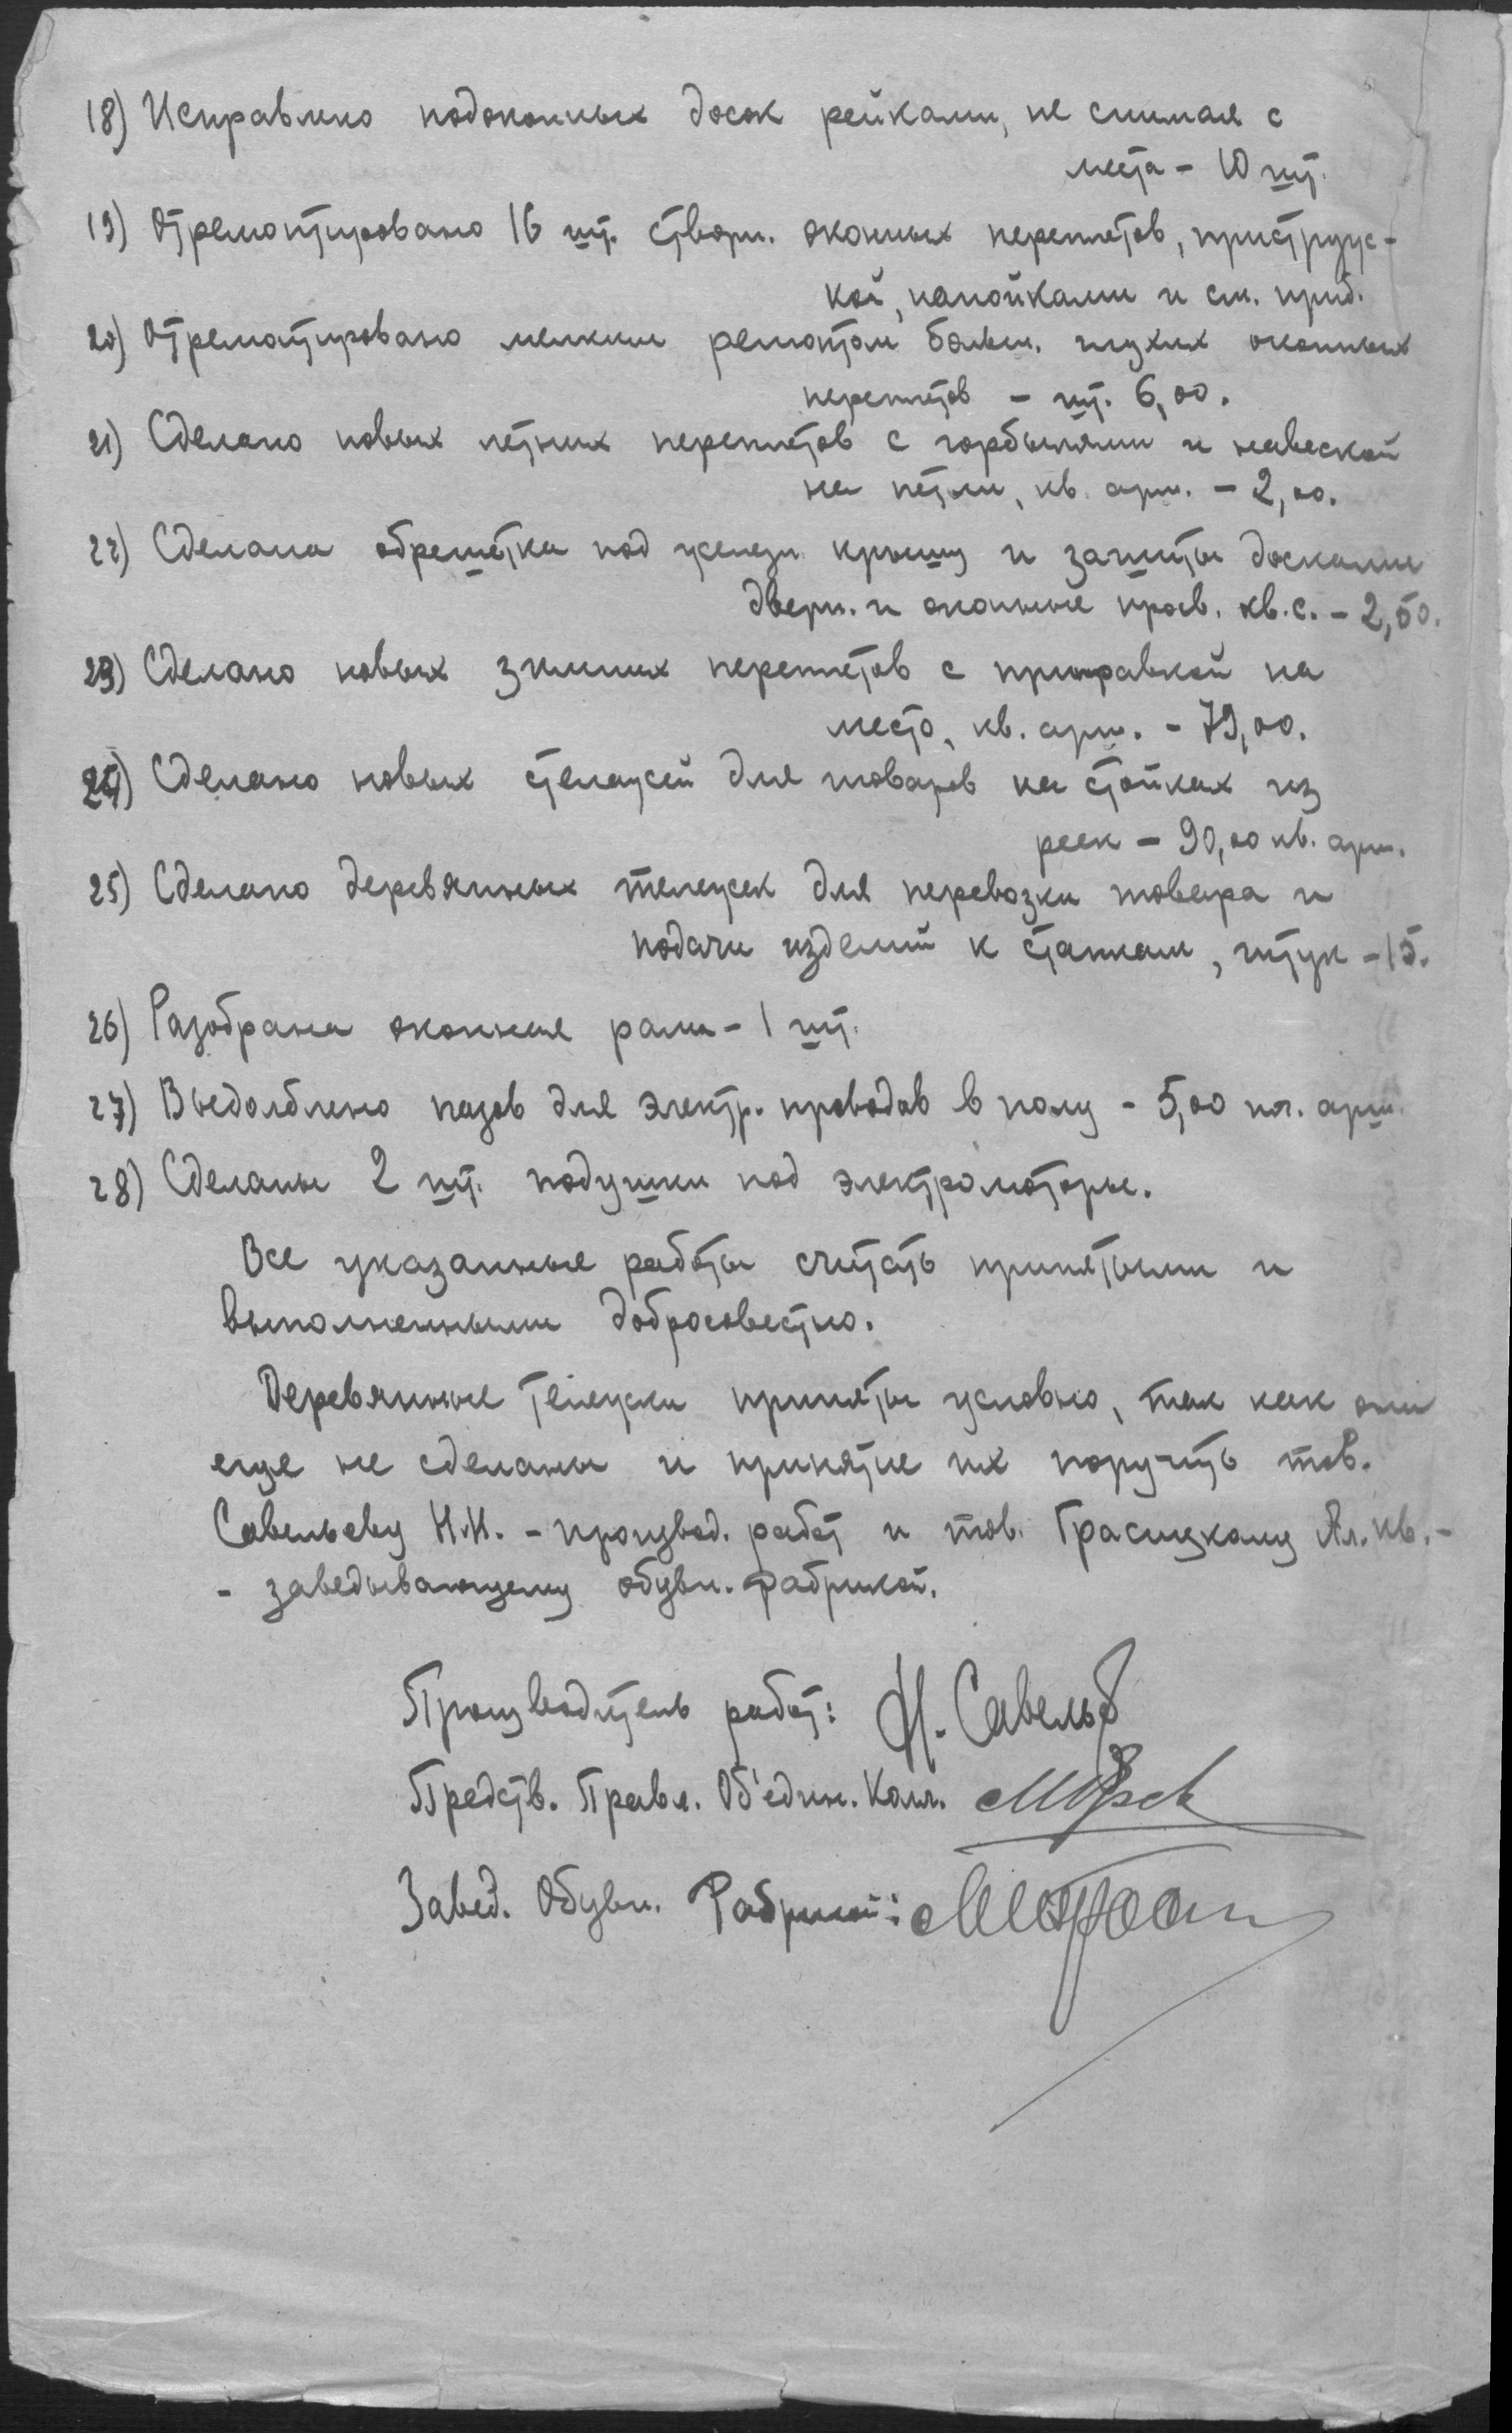 18) Исправлено подоконных досок рейками, не снимая с
места – 10 шт.
19) Отремонтировано 16 шт. створн. оконных переплетов, приструж-
кой, напойками и см. приб.
20) Отремонтировано мелким ремонтом больш. глухих оконных
переплетов – шт. 6,00.
21) Сделано новых летних переплетов с горбылями и навеской
на петли, кв. арш. – 2,00.
22) Сделана обрешётка под железн. крышу и зашиты досками
дверн. и оконные проев. кв. с. – 2,50.
23) Сделано новых зимних переплетов с приправкой на
место, кв. арш. – 79,00.
24) Сделано новых стелажей для товаров на стойках из
реек – 90,00 кв. арш.
25) Сделано деревянных тележек для перевозки товара и
подачи изделий к станкам, штук – 15.
26) Разобрана оконная рама – 1 шт.
27) Выдолблено пазов для электр. проводов в полу – 5,00 п. арш.
28) Сделаны 2 шт. подушки под электромоторы.
Все указанные работы считать принятыми и
выполненными добросовестно.
Деревянные тележки приняты условно, так как они
еще не сделаны и принятие их поручить тов.
Савельеву Н.Н. – производ. работ и тов. Ал. Ив. –
– заведывающему обувн. фабрикой.
Производитель работ: Н. Савельев
Предств. Правл. Об'един. Комн.
Завед. Обувн. Фабрикой: